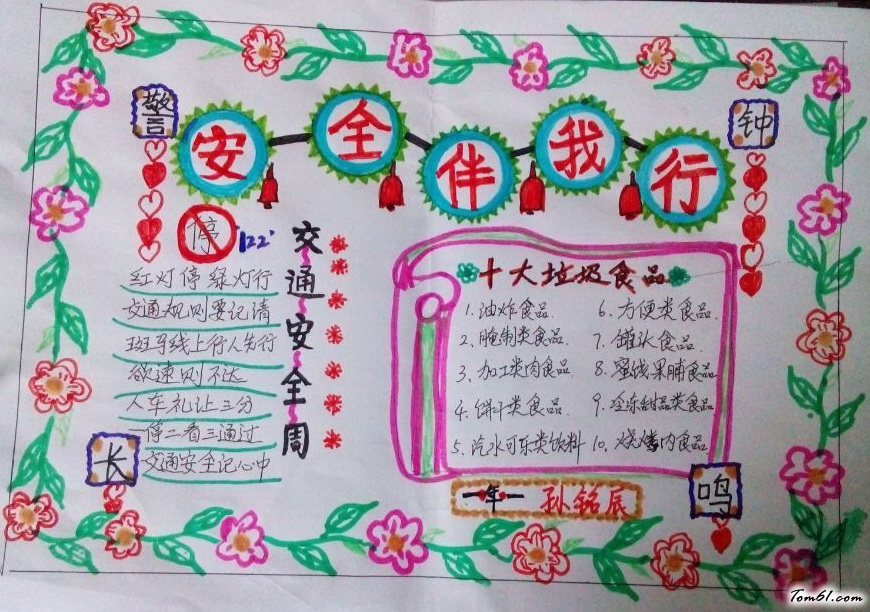 安全伴我行
警
钟
长
鸣
停
122'
交通安全周
红灯停绿灯行
交通规则要记清
斑马线上行人先行
欲速则不达
人车礼让三分
一停二看三通过
交通安全记心中
十大垃圾食品
1.油炸食品.
2.腌制类食品.
3.加工类肉食品
4.饼干类食品.
5.汽水可乐类饮料
6.方便类食品.
7.罐头食品.
8.蜜饯果脯食品
9.冷冻甜品类食品
10.烧烤肉食品
一年一 孙铭辰
Tom61.com